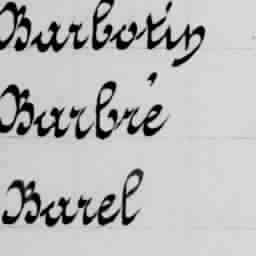 Barbotin
Barbré
Barel